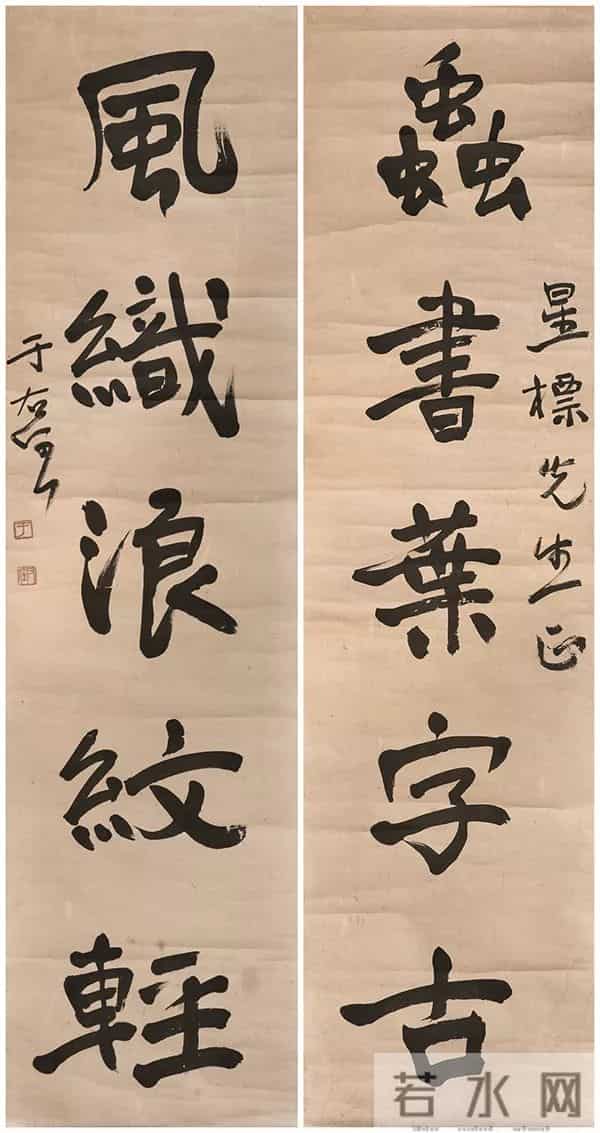 蟲書葉字古
星標先生正
風織浪紋輕
于右任
若水网